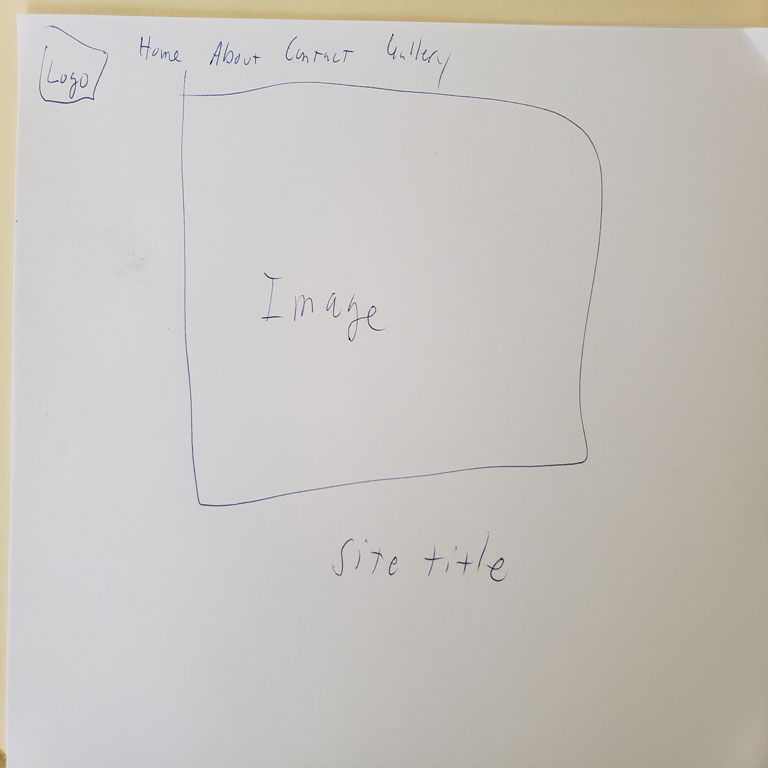 Logo
Home About Contact Gallery
Image
Site title